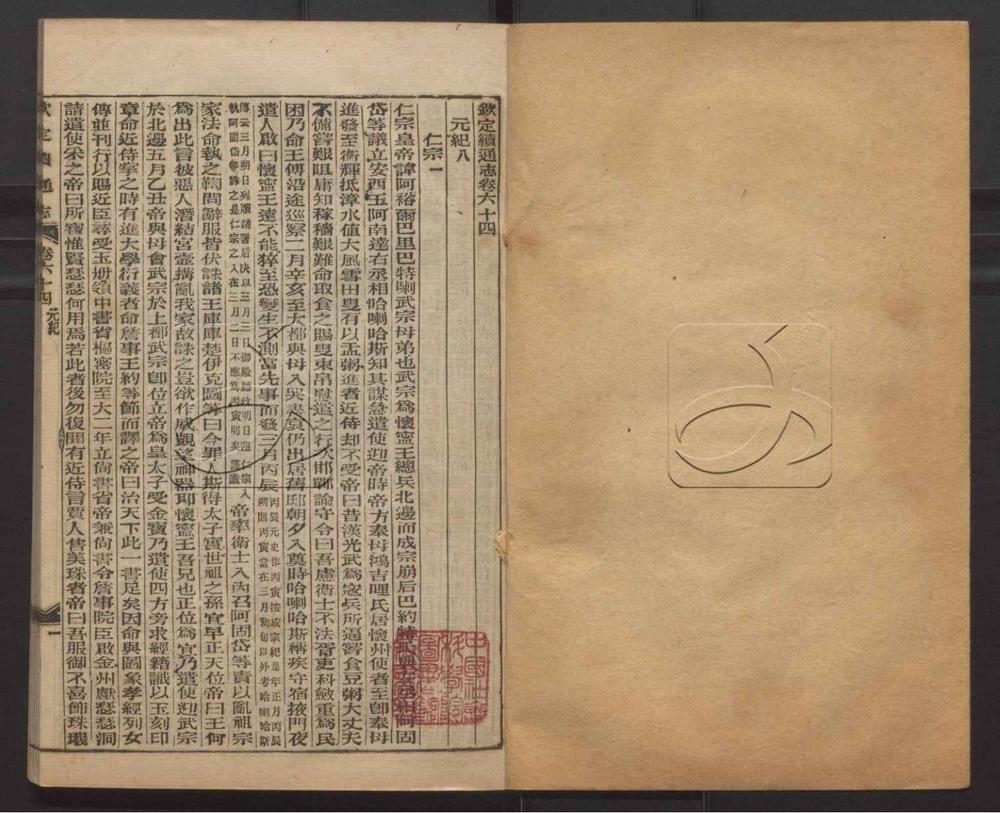 欽定續通志卷六十四
元紀八
仁宗一
仁宗皇帝諱阿裕爾巴里巴特喇武宗母弟也武宗為懷寧王總兵北邊而成宗崩后巴約特氏與左丞相阿固
岱等議立安西王阿南達右丞相哈喇哈斯知其謀急遣使迎帝時帝方奉母鴻吉哩氏居懷州使者至即奉母
進發至衛輝抵漳水值大風雪田叟有以盂粥進者近侍却不受帝曰昔漢光武為寇兵所逼嘗食豆粥大丈夫
不備嘗艱阻庸知稼穡艱難命取食之賜叟束帛慰遣之行次邯鄲諭守令曰吾慮衛士不法胥吏科斂重為民
困乃命王傅沿途巡察二月辛亥至大都與母入哭盡哀仍出居舊邸朝夕入奠時哈喇哈斯稱疾守宿掖門夜
遣人啟曰懷寧王遠不能猝至恐變生不測當先事而發三月丙辰丙辰元史作丙寅按成宗紀是年正月丙辰朔則丙寅當在三月初旬以外考哈喇哈斯
傳云三月朔日列牘請署后決以三月三日御殿聽政明日迎仁宗入執阿固岱等誅之是仁宗之入在三月二日不應為丙寅明矣謹識帝率衛士入內召阿固岱等責以亂祖宗
家法命執之鞫問辭服皆伏誅諸王庫庫楚伊克圖等曰今罪人斯得太子實世祖之孫宜早正天位帝曰王何
為出此言彼惡人潛結宮壼搆亂我家故誅之豈欲作威覬望神器耶懷寧王吾兄也正位為宜乃遣使迎武宗
於北邊五月乙丑帝與母會武宗於上都武宗即位立帝為皇太子受金寶乃遣使四方旁求經籍識以玉刻印
章命近侍掌之時有進大學衍義者命詹事王約等節而譯之帝曰治天下此一書足矣因命與圖象孝經列女
傳並刊行以賜近臣尋受玉冊領中書省樞密院至大二年立尚書省帝兼尚書令詹事院臣啟金州獻瑟瑟洞
請遣使采之帝曰所寶惟賢瑟瑟何用焉若此者後勿復聞有近侍言賈人售美珠者帝曰吾服御不喜飾珠璣
欽定續通志 卷六十四 元紀
一